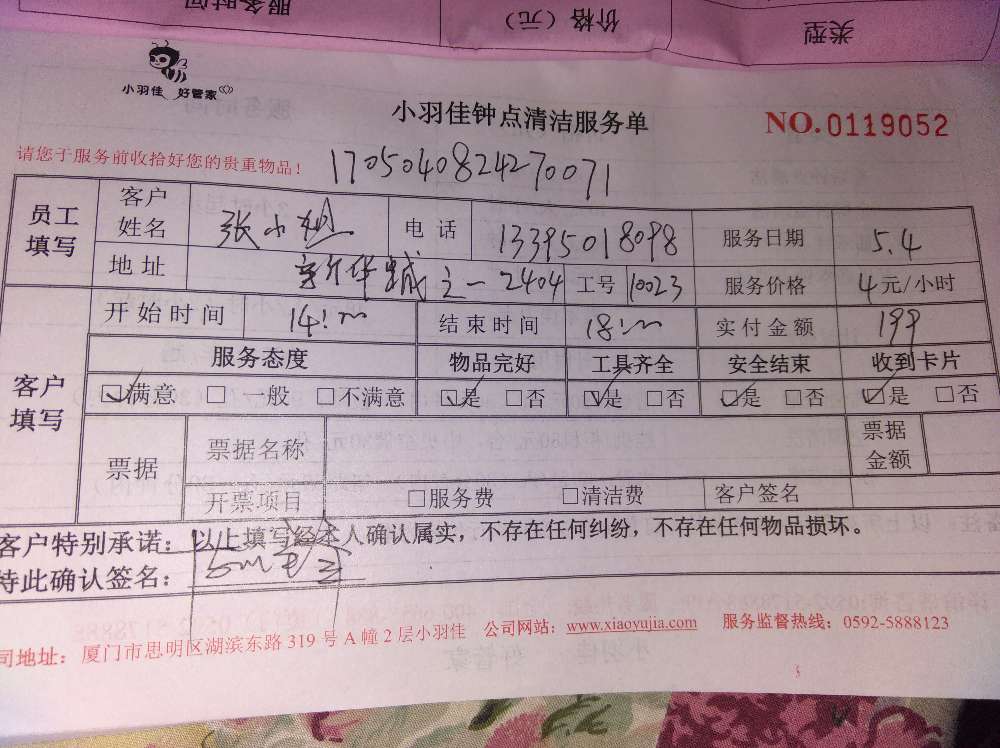 服务时间 价格（元） 类型
小羽佳 好管家
小羽佳钟点清洁服务单 NO.0119052
请您于服务前收拾好您的贵重物品！ 1705040824270071
员工填写 客户姓名 张小 电话 13395018098 服务日期 5.4
地址 华城之一2404 工号 10023 服务价格 4元/小时
客户填写 开始时间 14: 结束时间 18: 实付金额 199
服务态度 物品完好 工具齐全 安全结束 收到卡片
☑满意 □一般 □不满意 ☑是 □否 ☑是 □否 ☑是 □否 ☑是 □否
票据 票据名称 票据金额
开票项目 □服务费 □清洁费 客户签名
客户特别承诺：以上填写经本人确认属实，不存在任何纠纷，不存在任何物品损坏。
特此确认签名：
司地址：厦门市思明区湖滨东路319号A幢2层小羽佳 公司网站：www.xiaoyujia.com 服务监督热线：0592-5888123